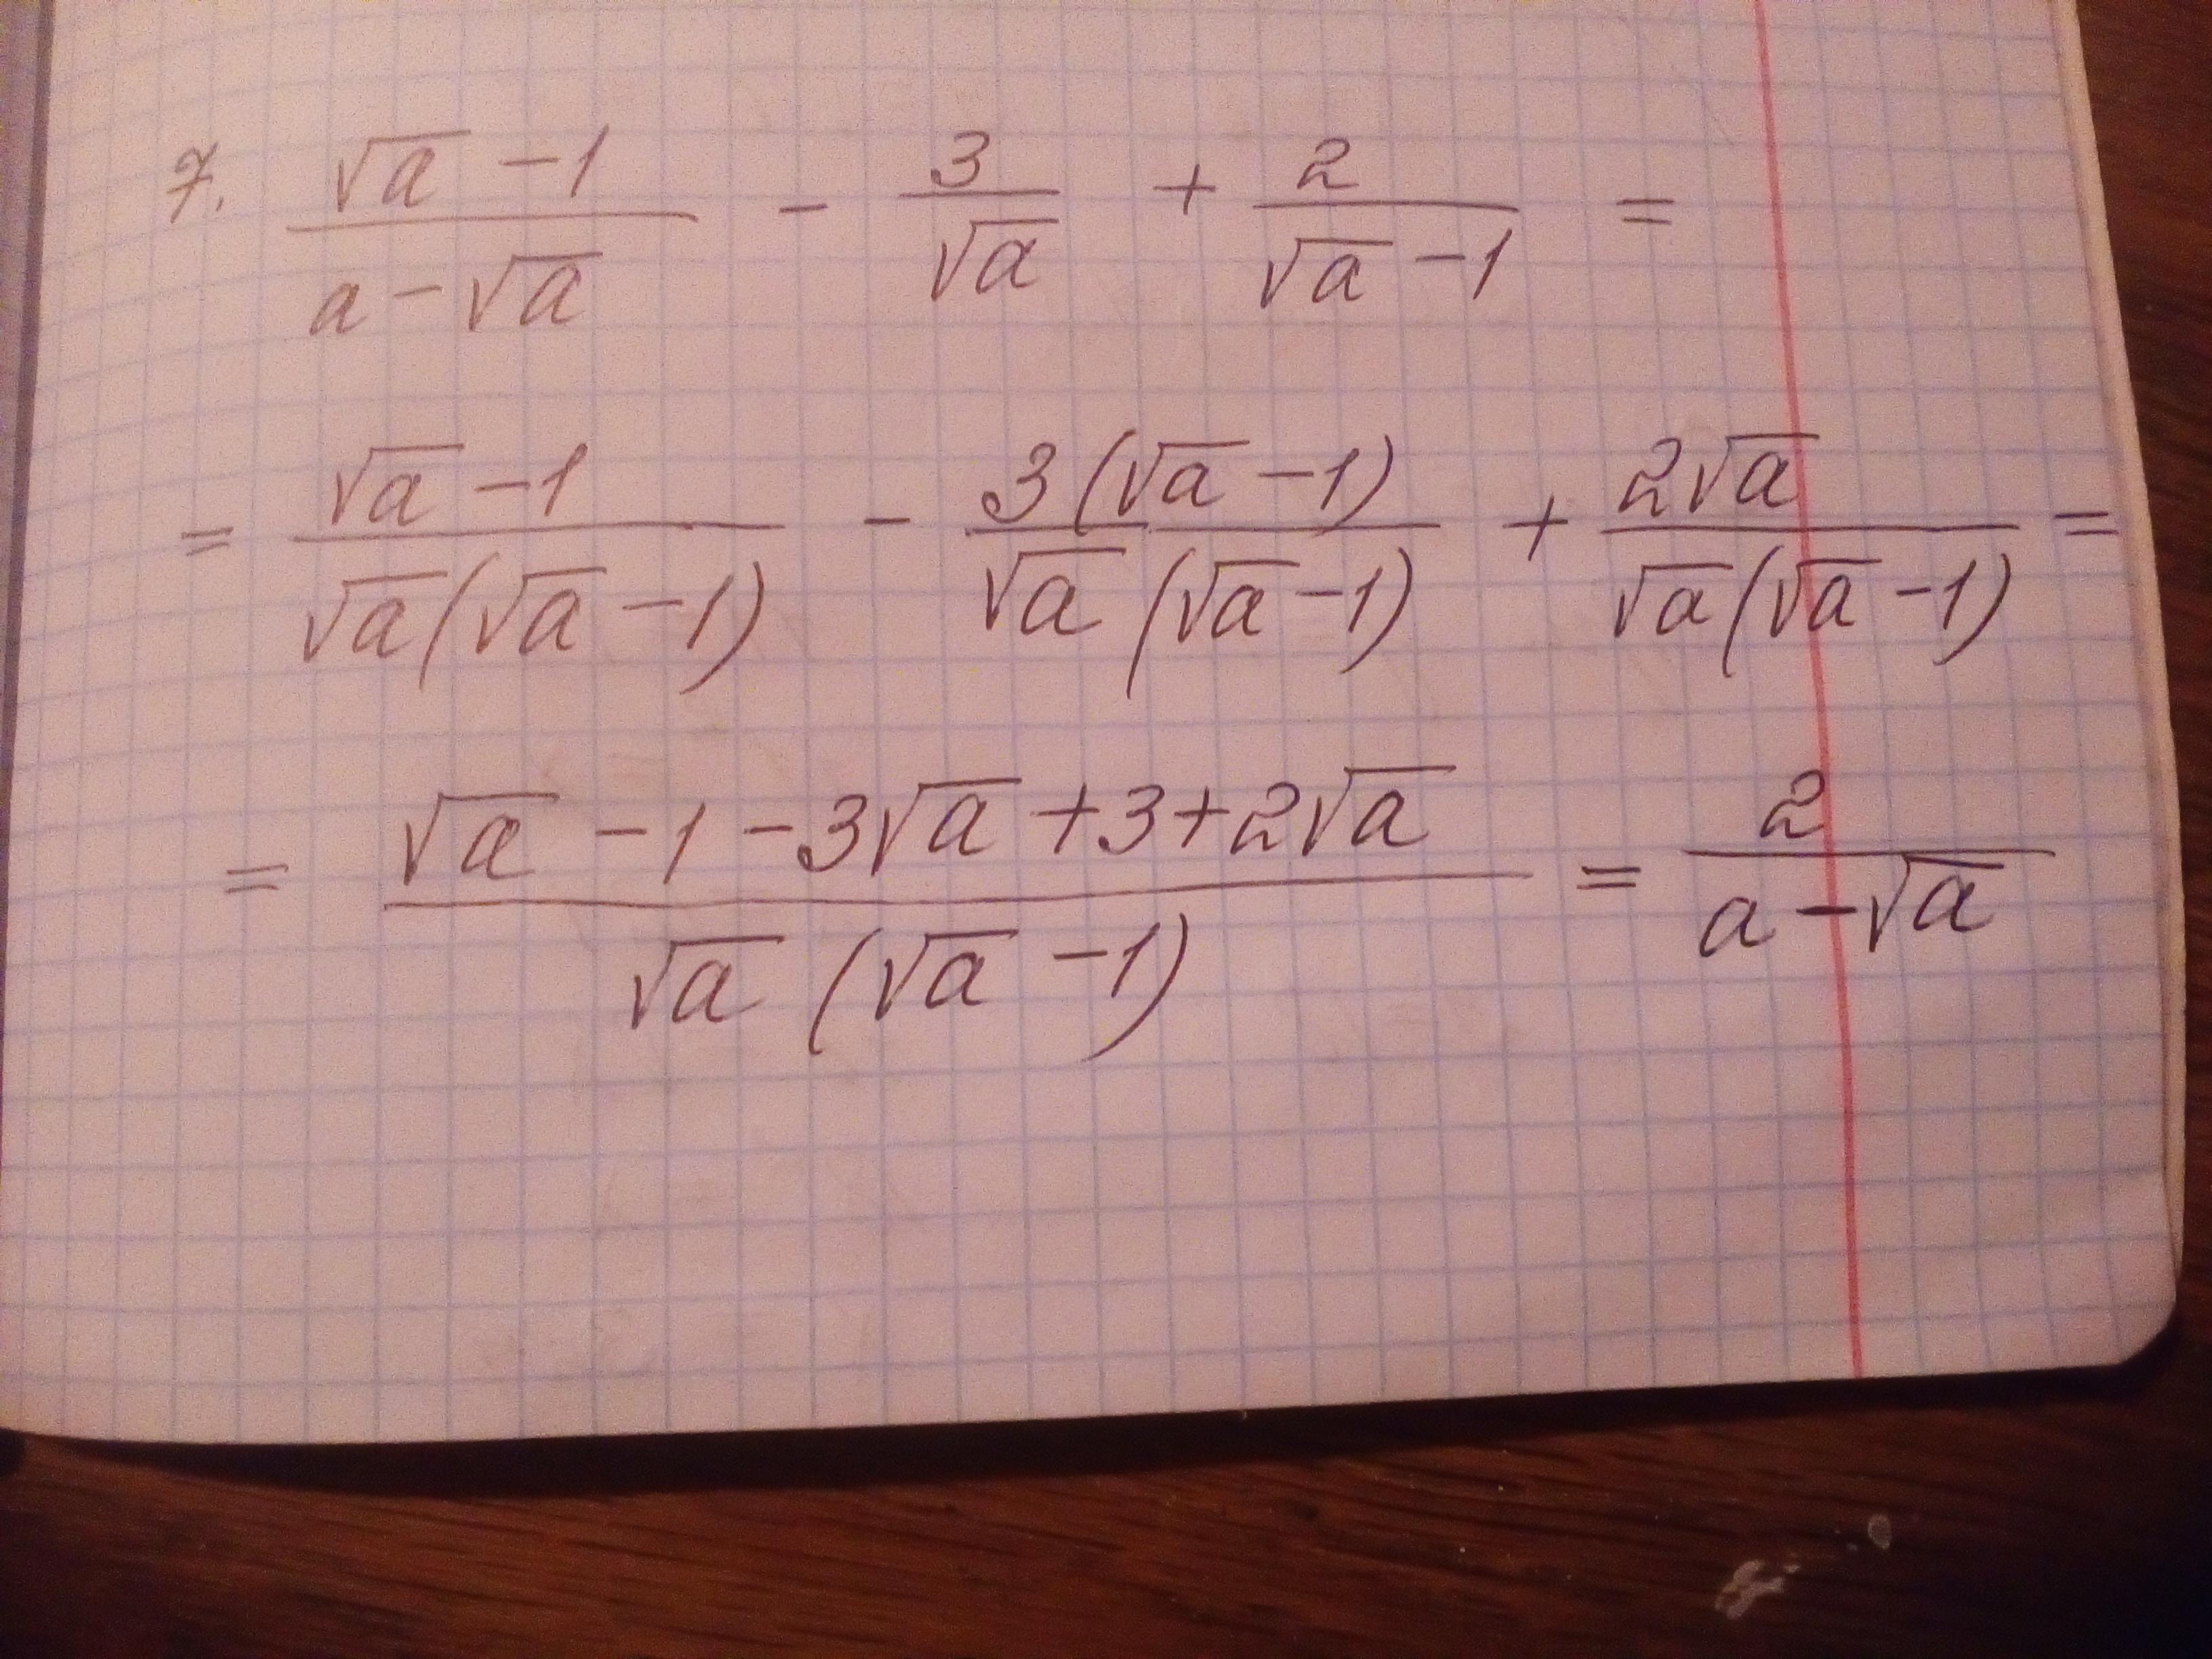 7. (√a - 1)/(a - √a) - 3/√a + 2/(√a - 1) =
= (√a - 1)/(√a(√a - 1)) - 3(√a - 1)/(√a(√a - 1)) + 2√a/(√a(√a - 1)) =
= (√a - 1 - 3√a + 3 + 2√a)/(√a(√a - 1)) = 2/(a - √a)